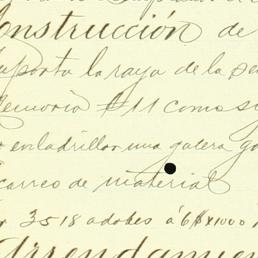 onstrucción de
mporta la raya de la se
Memoria #11 como s
enladrillar una galera
carreo de material
3518 adobes á 6$ x 1000
Arrendamien